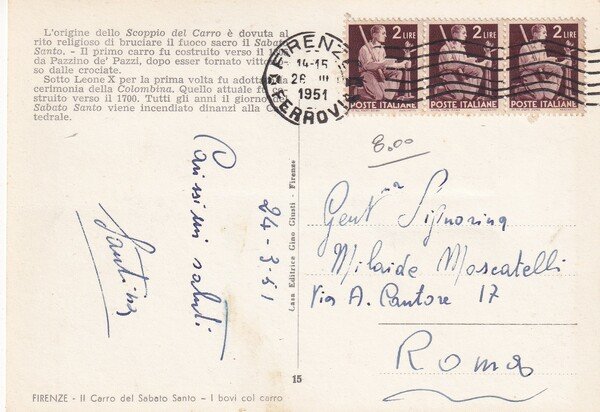 L'origine dello Scoppio del Carro è dovuta al
rito religioso di bruciare il fuoco sacro il Sabato
Santo. - Il primo carro fu costruito verso il
da Pazzino de' Pazzi, dopo esser tornato
so dalle crociate.
Sotto Leone X per la prima volta fu adottata la
cerimonia della Colombina. Quello attuale fu co
struito verso il 1700. Tutti gli anni il giorno
Sabato Santo viene incendiato dinanzi alla
tedrale.
FIRENZE
14-15
26 III
1951
FERROVIA
2 LIRE
POSTE ITALIANE
2 LIRE
POSTE ITALIANE
2 LIRE
POSTE ITALIANE
8.00
24-3-51
Carissimi saluti
Santina
Casa Editrice Gino Giusti - Firenze
Gent.ma Signorina
Milaide Moscatelli
Via A. Cantore 17
Roma
15
FIRENZE - Il Carro del Sabato Santo - I bovi col carro